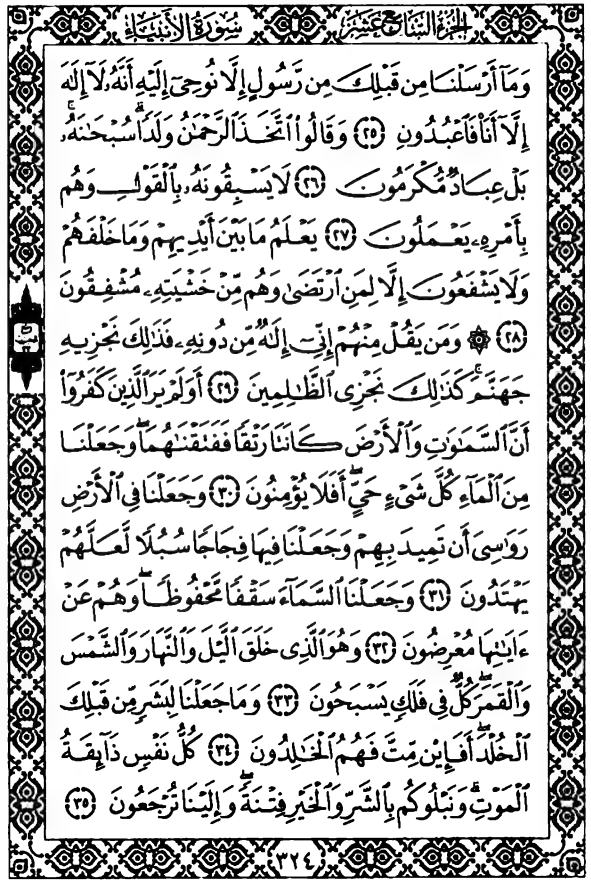 سُورَةُ الأَنْبِيَاء الجُزْءُ السَّابِعَ عَشَرَ
وَمَآ أَرْسَلْنَا مِن قَبْلِكَ مِن رَّسُولٍ إِلَّا نُوحِىٓ إِلَيْهِ أَنَّهُۥ لَآ إِلَٰهَ
إِلَّآ أَنَا۠ فَٱعْبُدُونِ ٢٥ وَقَالُوا۟ ٱتَّخَذَ ٱلرَّحْمَٰنُ وَلَدًا ۗ سُبْحَٰنَهُۥ ۚ
بَلْ عِبَادٌ مُّكْرَمُونَ ٢٦ لَا يَسْبِقُونَهُۥ بِٱلْقَوْلِ وَهُم
بِأَمْرِهِۦ يَعْمَلُونَ ٢٧ يَعْلَمُ مَا بَيْنَ أَيْدِيهِمْ وَمَا خَلْفَهُمْ
وَلَا يَشْفَعُونَ إِلَّا لِمَنِ ٱرْتَضَىٰ وَهُم مِّنْ خَشْيَتِهِۦ مُشْفِقُونَ
٢٨ ۞ وَمَن يَقُلْ مِنْهُمْ إِنِّىٓ إِلَٰهٌ مِّن دُونِهِۦ فَذَٰلِكَ نَجْزِيهِ
جَهَنَّمَ ۚ كَذَٰلِكَ نَجْزِى ٱلظَّٰلِمِينَ ٢٩ أَوَلَمْ يَرَ ٱلَّذِينَ كَفَرُوٓا۟
أَنَّ ٱلسَّمَٰوَٰتِ وَٱلْأَرْضَ كَانَتَا رَتْقًا فَفَتَقْنَٰهُمَا ۖ وَجَعَلْنَا
مِنَ ٱلْمَآءِ كُلَّ شَىْءٍ حَىٍّ ۖ أَفَلَا يُؤْمِنُونَ ٣٠ وَجَعَلْنَا فِى ٱلْأَرْضِ
رَوَٰسِىَ أَن تَمِيدَ بِهِمْ وَجَعَلْنَا فِيهَا فِجَاجًا سُبُلًا لَّعَلَّهُمْ
يَهْتَدُونَ ٣١ وَجَعَلْنَا ٱلسَّمَآءَ سَقْفًا مَّحْفُوظًا ۖ وَهُمْ عَنْ
ءَايَٰتِهَا مُعْرِضُونَ ٣٢ وَهُوَ ٱلَّذِى خَلَقَ ٱلَّيْلَ وَٱلنَّهَارَ وَٱلشَّمْسَ
وَٱلْقَمَرَ ۖ كُلٌّ فِى فَلَكٍ يَسْبَحُونَ ٣٣ وَمَا جَعَلْنَا لِبَشَرٍ مِّن قَبْلِكَ
ٱلْخُلْدَ ۖ أَفَإِي۟ن مِّتَّ فَهُمُ ٱلْخَٰلِدُونَ ٣٤ كُلُّ نَفْسٍ ذَآئِقَةُ
ٱلْمَوْتِ ۗ وَنَبْلُوكُم بِٱلشَّرِّ وَٱلْخَيْرِ فِتْنَةً ۖ وَإِلَيْنَا تُرْجَعُونَ ٣٥
٣٢٤